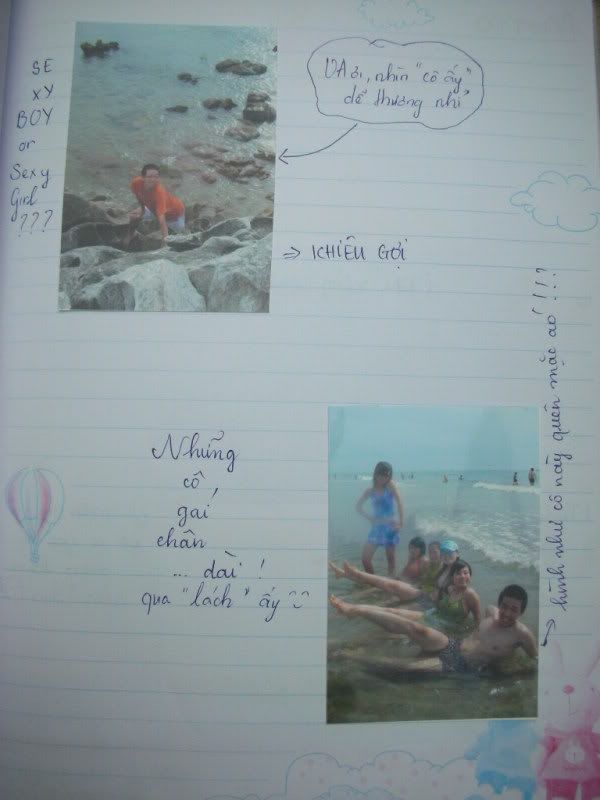 SE
XY
BOY
or
Sexy
Girl
???
VA ơi, nhìn "cô ấy"
dễ thương nhỉ
=> KHIÊU GỢI
hình như cô này quên mặc áo !!!
Những
cô
gái
chân
... dài !
qua "lách" ấy